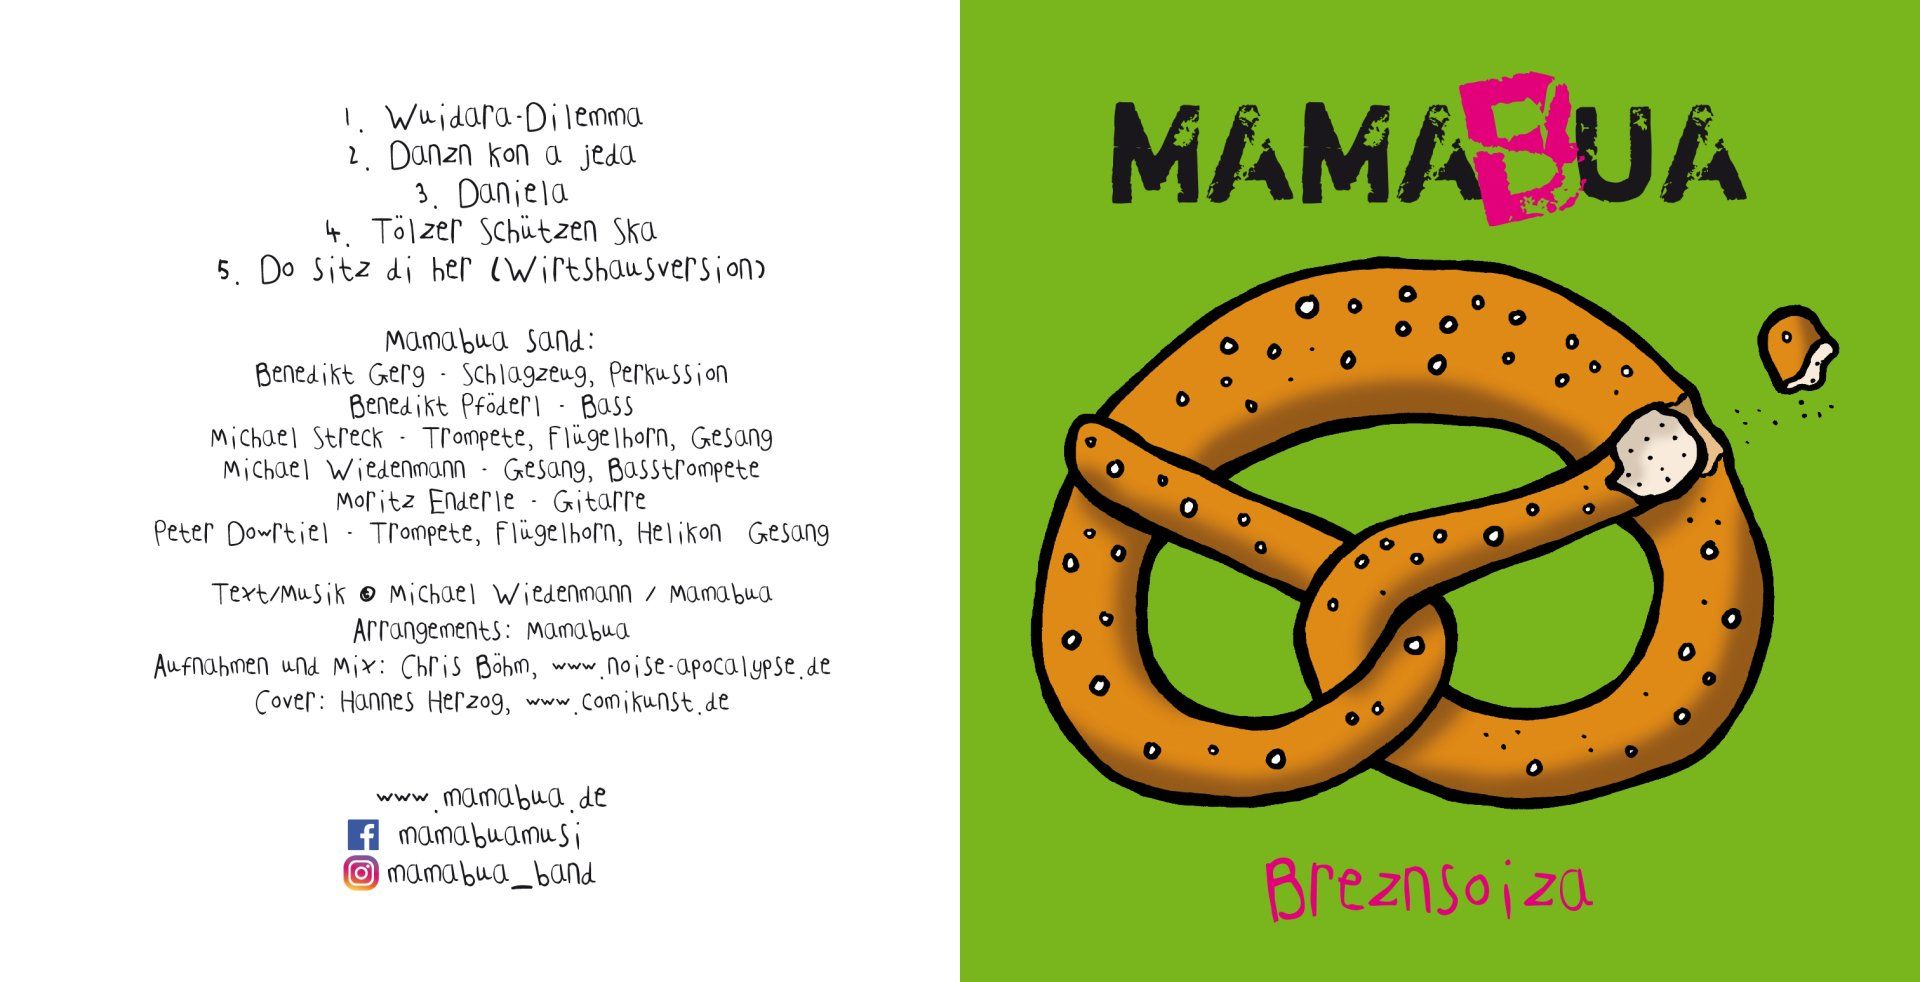 1. Wuidara-Dilemma
2. Danzn kon a jeda
3. Daniela
4. Tölzer Schützen Ska
5. Do sitz di her (Wirtshausversion)
Mamabua sand:
Benedikt Gerg - Schlagzeug, Perkussion
Benedikt Pföderl - Bass
Michael Streck - Trompete, Flügelhorn, Gesang
Michael Wiedenmann - Gesang, Basstrompete
Moritz Enderle - Gitarre
Peter Dowrtiel - Trompete, Flügelhorn, Helikon Gesang
Text/Musik © Michael Wiedenmann / Mamabua
Arrangements: Mamabua
Aufnahmen und Mix: Chris Böhm, www.noise-apocalypse.de
Cover: Hannes Herzog, www.comikunst.de
www.mamabua.de
mamabuamusi
mamabua_band
MAMABUA
Breznsoiza